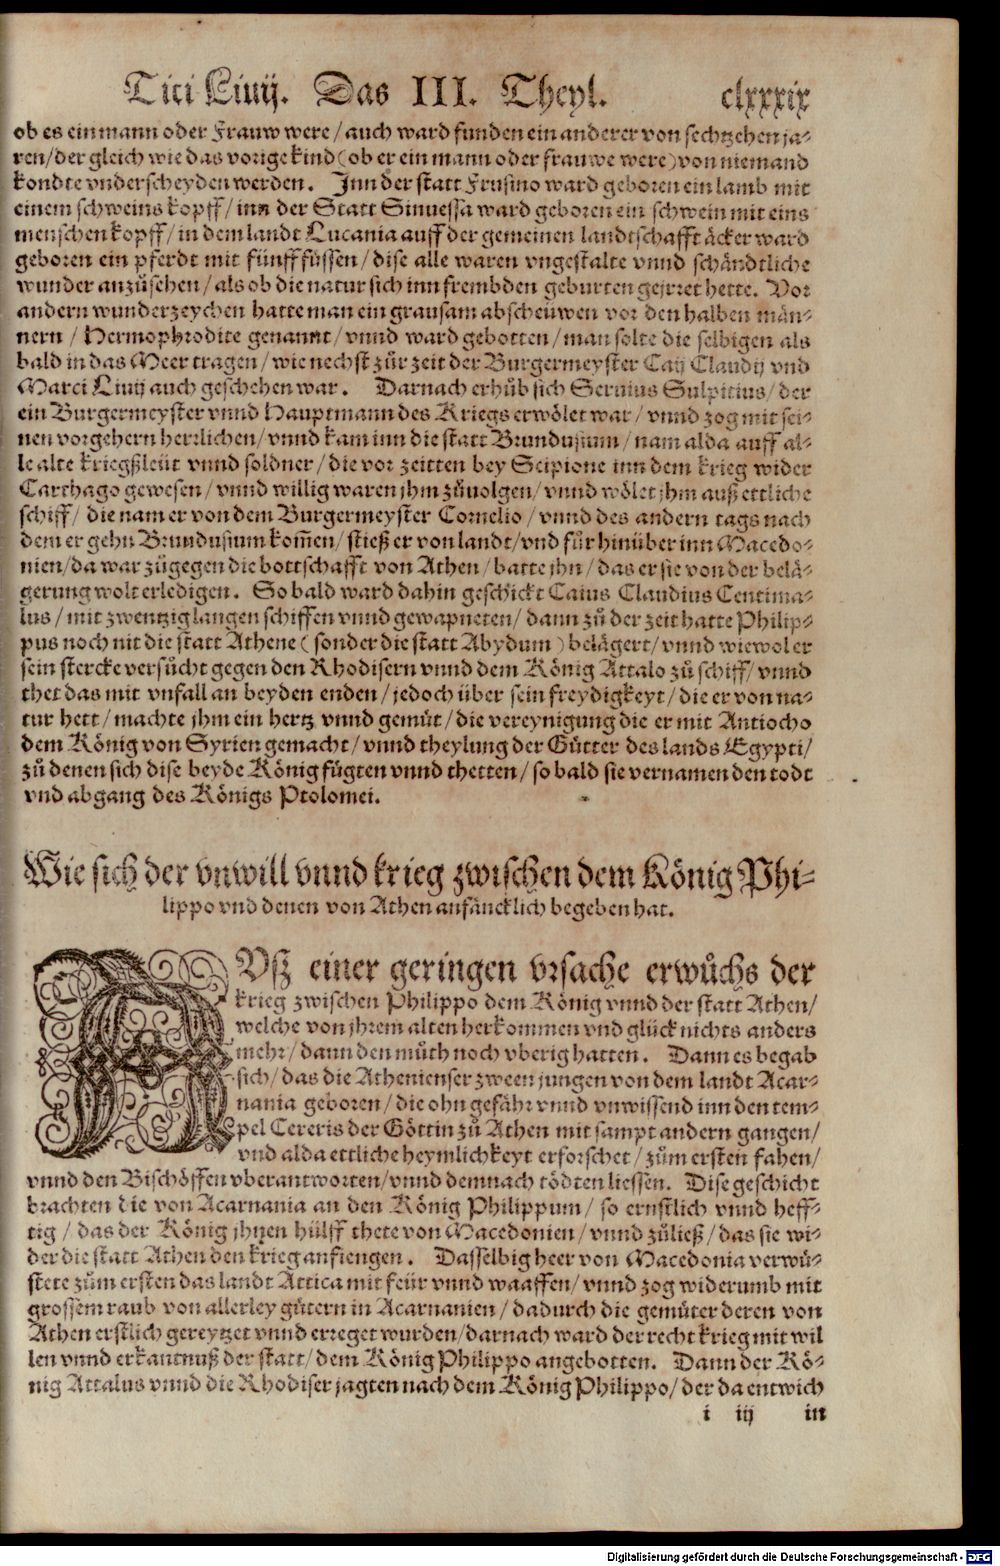 Titi Liuij. Das III. Theyl. clxxxix
ob es ein mann oder Frauw were / auch ward funden ein anderer von sechtzehen ja⸗
ren / der gleich wie das vorige kind (ob er ein mann oder frauwe were) von niemand
kondte vnderscheyden werden. Inn der statt Frusino ward geboren ein lamb mit
einem schweins kopff / inn der Statt Sinuessa ward geboren ein schwein mit eins
menschen kopff / in dem landt Lucania auff der gemeinen landtschafft äcker ward
geboren ein pferdt mit fünff füssen / dise alle waren vngestalte vnnd schändtliche
wunder anzůsehen / als ob die natur sich inn frembden geburten gejrret hette. Vor
andern wunderzeychen hatte man ein grausam abscheüwen vor den halben män⸗
nern / Hermophrodite genannt / vnnd ward gebotten / man solte die selbigen als
bald in das Meer tragen / wie nechst zůr zeit der Burgermeyster Caij Claudij vnd
Marci Liuij auch geschehen war. Darnach erhůb sich Seruius Sulpitius / der
ein Burgermeyster vnnd Hauptmann des Kriegs erwölet war / vnnd zog mit sei⸗
nen vorgehern herrlichen / vnnd kam inn die statt Brundusium / nam alda auff al⸗
le alte kriegßleüt vnnd soldner / die vor zeitten bey Scipione inn dem krieg wider
Carthago gewesen / vnnd willig waren jhm zůuolgen / vnnd wölet jhm auß ettliche
schiff / die nam er von dem Burgermeyster Cornelio / vnnd des andern tags nach
dem er gehn Brundusium kom̃en / stieß er von landt / vnd fůr hinüber inn Macedo⸗
nien / da war zůgegen die bottschafft von Athen / batte jhn / das er sie von der belä⸗
gerung wolt erledigen. So bald ward dahin geschickt Caius Claudius Centima⸗
lus / mit zwentzig langen schiffen vnnd gewapneten / dann zů der zeit hatte Philip⸗
pus noch nit die statt Athene (sonder die statt Abydum) belägert / vnnd wiewol er
sein stercke versůcht gegen den Rhodisern vnnd dem König Attalo zů schiff / vnnd
thet das mit vnfall an beyden enden / jedoch über sein freydigkeyt / die er von na⸗
tur hett / machte jhm ein hertz vnnd gemůt / die vereynigung die er mit Antiocho
dem König von Syrien gemacht / vnnd theylung der Gůtter des lands Egypti /
zů denen sich dise beyde König fůgten vnnd thetten / so bald sie vernamen den todt
vnd abgang des Königs Ptolomei.
Wie sich der vnwill vnnd krieg zwischen dem König Phi⸗
lippo vnd denen von Athen anfäncklich begeben hat.
AVsz einer geringen vrsache erwůchs der
krieg zwischen Philippo dem König vnnd der statt Athen /
welche von jhrem alten herkommen vnd glück nichts anders
mehr / dann den můth noch vberig hatten. Dann es begab
sich / das die Athenienser zween jungen von dem landt Acar⸗
nania geboren / die ohn gefähr vnnd vnwissend inn den tem⸗
pel Cereris der Göttin zů Athen mit sampt andern gangen /
vnd alda ettliche heymlichkeyt erforschet / zům ersten fahen /
vnnd den Bischöffen vberantworten / vnnd demnach tödten liessen. Dise geschicht
brachten die von Acarnania an den König Philippum / so ernstlich vnnd heff⸗
tig / das der König jhnen hülff thete von Macedonien / vnnd zůließ / das sie wi⸗
der die statt Athen den krieg anfiengen. Dasselbig heer von Macedonia verwů⸗
stete zům ersten das landt Attica mit feür vnnd waaffen / vnnd zog widerumb mit
grossem raub von allerley gütern in Acarnanien / dadurch die gemüter deren von
Athen erstlich gereytzet vnnd erreget wurden / darnach ward der recht krieg mit wil
len vnnd erkantnuß der statt / dem König Philippo angebotten. Dann der Kö⸗
nig Attalus vnnd die Rhodiser jagten nach dem König Philippo / der da entwich
i iij in
Digitalisierung gefördert durch die Deutsche Forschungsgemeinschaft - DFG